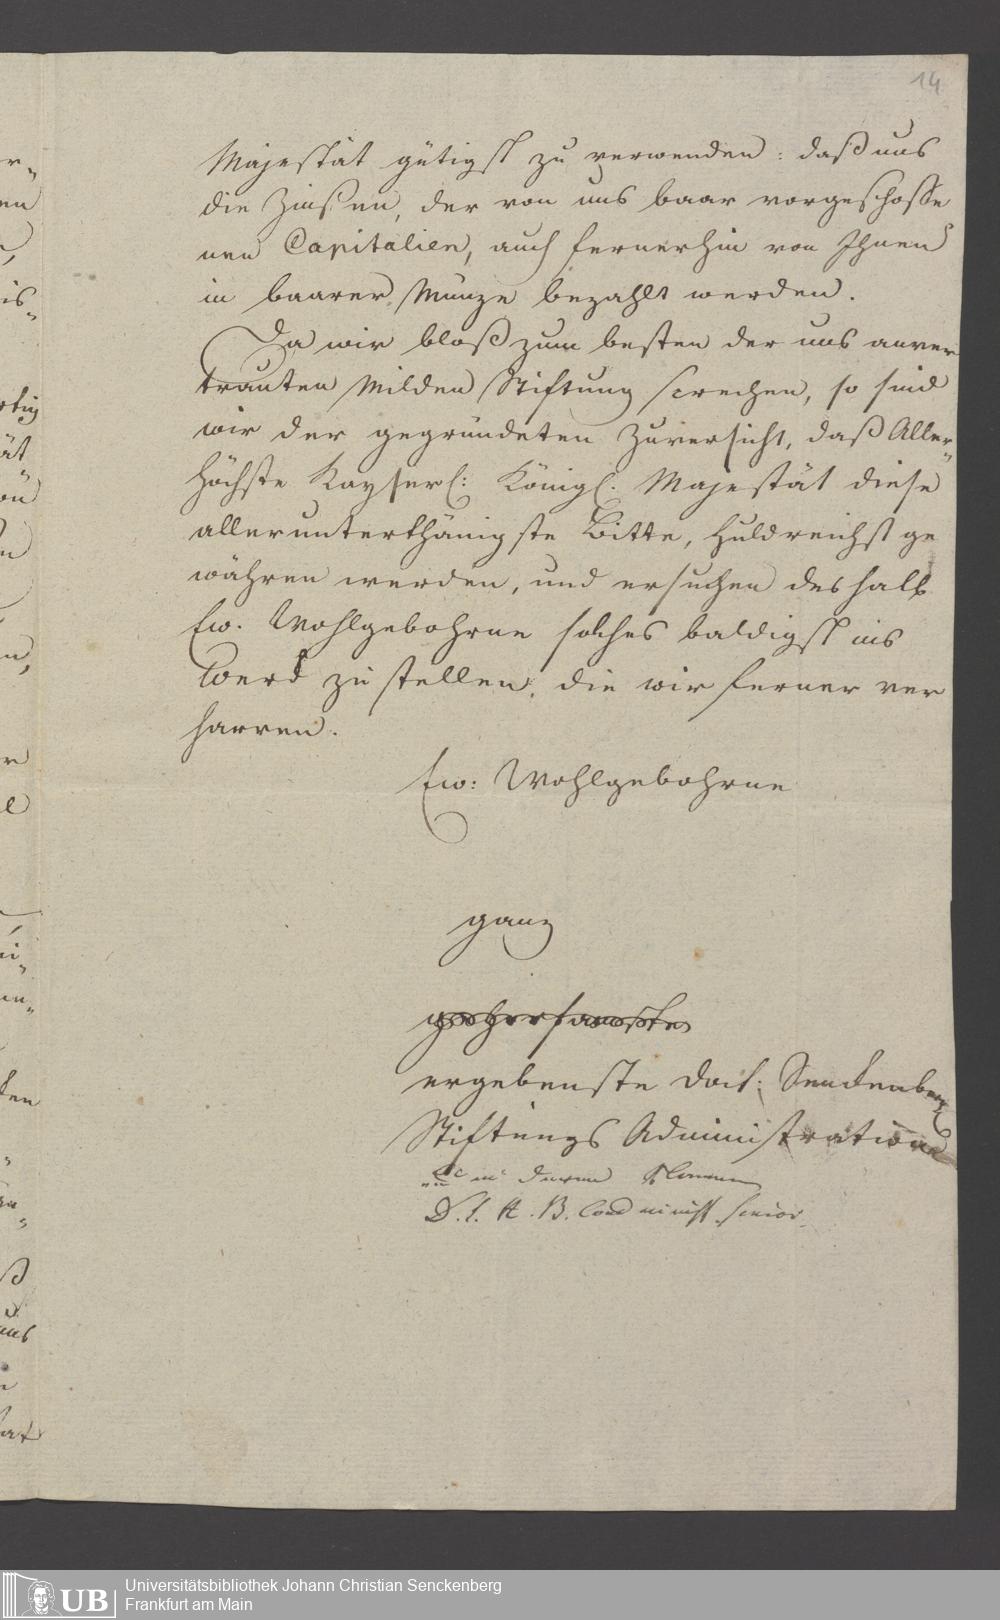 14
Majestät gütigst zu verwenden: daß uns
die Zinßen, der von uns baar vorgeschosse
nen Capitalien, auch fernerhin von Ihnen
in baarer Münze bezahlt werden.
Da wir bloß zum besten der uns anver
trauten Milden Stiftung sprechen, so sind
wir der gegründeten Zuversicht, daß Aller„
höchste Kayserl: Königl. Majestät diese
allerunterthänigste Bitte, huldreichst ge
währen werden, und ersuchen deshalb
Ew. Wohlgebohrne solches baldigst ins
Werck zu stellen, die wir ferner ver
harren.
Ew: Wohlgebohrne
ganz
ergebenste Doct: Senckenberg
Stiftungs Administration
in deren Namen
D. J. A. B. senior
Universitätsbibliothek Johann Christian Senckenberg
Frankfurt am Main
UB